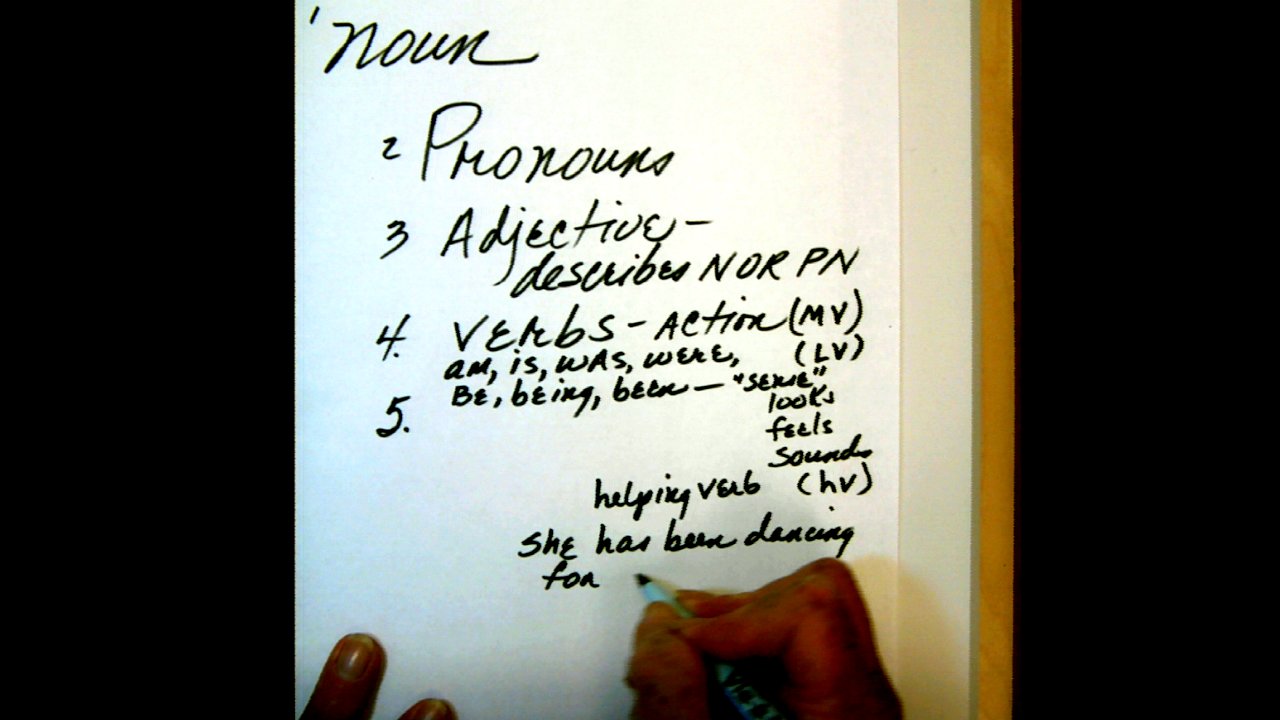 1 noun
2 Pronouns
3 Adjective -
describes N OR PN
4. VERbS - Action (MV)
am, is, was, were, (LV)
BE, being, been - "sense"
looks
5. feels
sounds
helping verb (hv)
She has been dancing
for